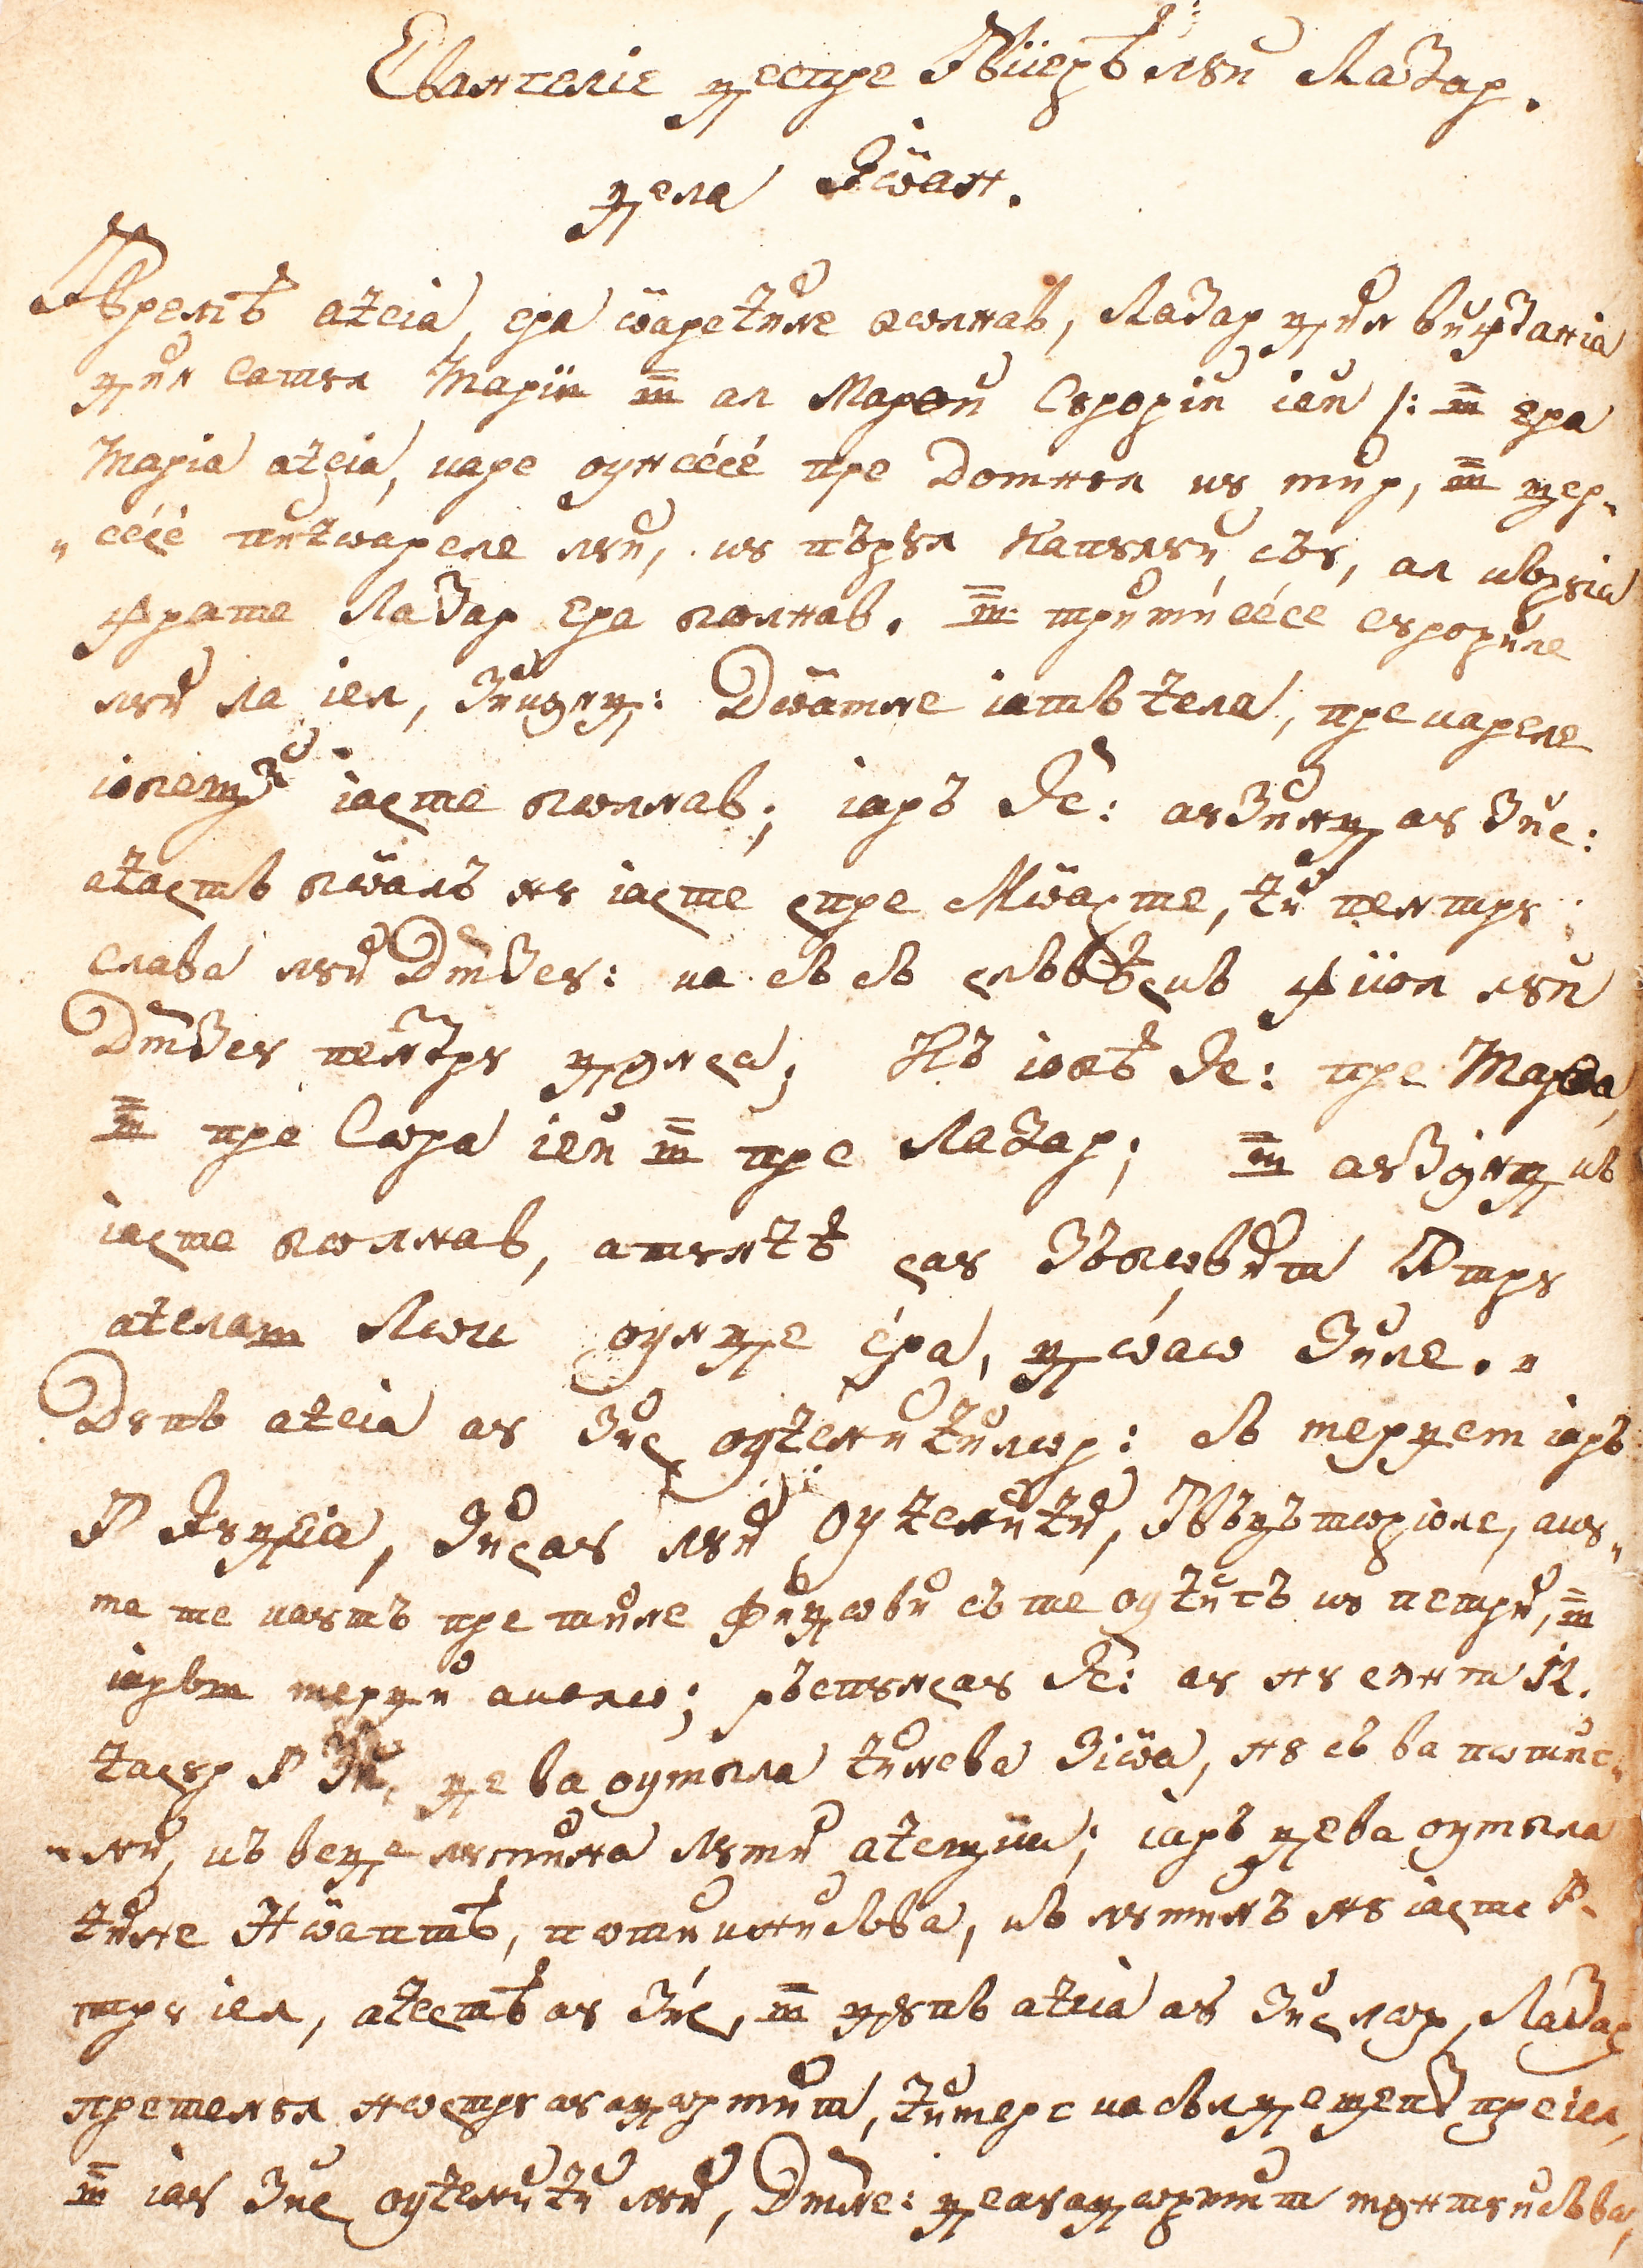 Евангеліе деспре Ꙟвїерѣ луй Лазар.
дела Іѡан.
Ꙟвремѣ ачеіа, ера ѡаречине болнав, Лазар дин виѳаніа
дин сатул Маріи ши ал Марѳи Сурорій іей /: ши ера
Маріа ачеіа, каре оунсесе пре Домнул ку мир, ши штер„
„сесе пичоареле луй, ку пъръл Капулуй съу, ал къруіа
фрате Лазар ера болнав. ши тримисесе сурориле
луй ла іел, зикѫнд: Дѡамне іатъ чела, пре кареле
іубещй іасте болнав; іаръ Іс: аузинд ау зис:
ачастъ боалъ ну іасте спре Мѡарте, чи пентру
слава луй Дмзеу: ка съ съ слъвѣскъ фіюл луй
Дмзеу пентру дѫнса; Къ юбѣ Іс: пре Марѳа,
ши пре Сора іей ши пре Лазар; ши аузѫнд къ
іасте болнав, атунчѣ сау зъбовит Ꙟтру
ачелаш Лок оунде ера, доао зиле. „
Дупъ ачеіа ау зис оученичилор: съ мерѫем іаръ
Ꙟ Іудеіа, зисау луй Оученичй, Ꙟвъцъторюле, аку„
ма те каутъ пре тине Жидовй съ те оучигъ ку петри, ши
іаръш мерѫй аколо; ръспунсау Іс: ау ну сѫнт 12.
часур Ꙟ зи, де ва оумбла чинева зіоа, ну съ ва потик„
„ни, къ веде лумина Лумй ачещіа; іаръ дева оумбла
чине Ноаптѣ, потикнисъва, къ луминъ ну іасте Ꙟ„
тру іел, ачестѣ ау зис, ши дупъ ачеіа ау зис лор, Лазар
претенул ностру ау адормит, чи мерг ка съл дещепт пре іел,
ши іау зис оученичй луй, Дмне: де ау адормит мѫнтуисъва,